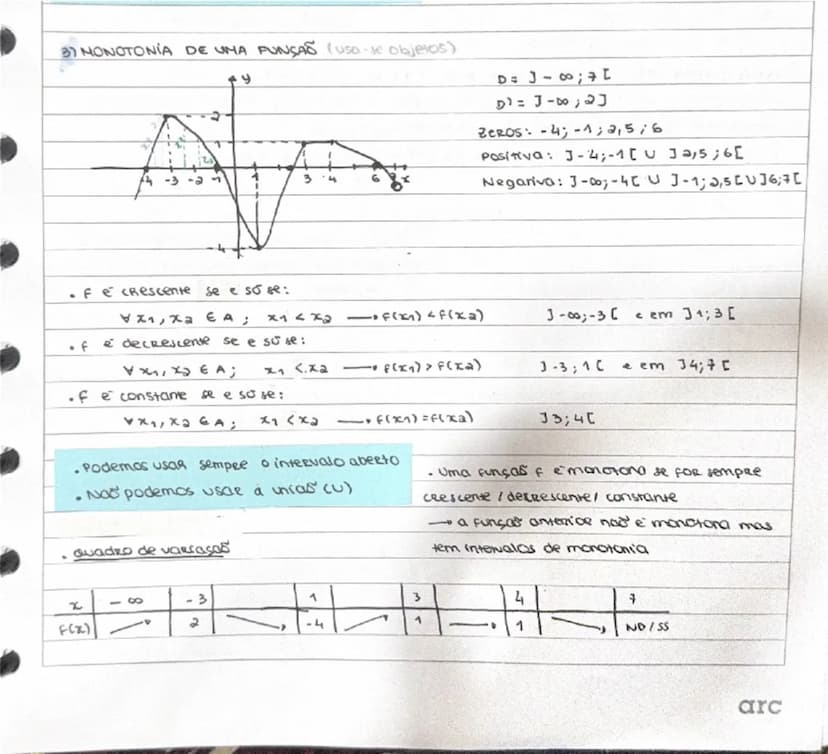 3) MONOTONÍA DE UMA FUNÇÃO (usa-se objetos)
y
2
1
-4 -3 -2 -1 1 3 4 6 7 x
-4
D = ]-∞; 7[
D' = ]-∞; 2]
Zeros: -4; -1; 2,5; 6
Positiva: ]-4; -1[ U ]2,5; 6[
Negativa: ]-∞; -4[ U ]-1; 2,5[ U ]6; 7[
. f é crescente se e só se:
∀ x1, x2 ∈ A; x1 < x2 → f(x1) < f(x2) ]-∞; -3[ e em ]1; 3[
. f é decrescente se e só se:
∀ x1, x2 ∈ A; x1 < x2 → f(x1) > f(x2) ]-3; 1[ e em ]4; 7[
. f é constante se e só se:
∀ x1, x2 ∈ A; x1 < x2 → f(x1) = f(x2) ]3; 4[
. Podemos usar sempre o intervalo aberto
. Não podemos usar a união (U)
. Uma função f é monotona se for sempre
crescente / decrescente / constante
→ a função anterior não é monotona mas
tem intervalos de monotonia
. Quadro de variação
x -∞ -3 1 3 4 7
f(x) ↗ 2 ↘ -4 ↗ 1 → 1 ↘ ND/SS
arc